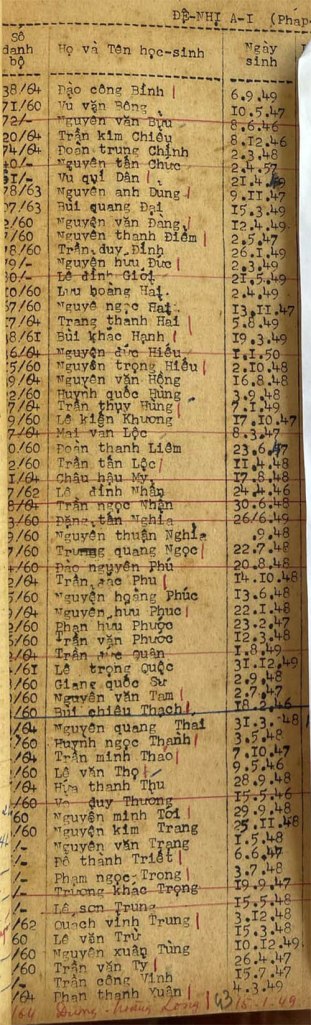 ĐỆ-NHỊ A-I (Pháp-
Số danh bộ Họ và Tên học-sinh Ngày sinh
38/64 Đào công Bình 6.9.49
71/60 Vũ văn Bông 10.5.47
72/- Nguyễn văn Bửu 8.6.46
20/64 Trần kim Chiêu 8.12.46
74/64 Đoàn trung Chính 2.3.48
40/- Nguyễn tấn Chức 2.4.57
51/- Vũ quí Dân 21.4.
78/63 Nguyễn anh Dũng 9.11.47
07/63 Bùi quang Đại 15.3.49
2/60 Nguyễn văn Đang 12.4.49
/60 Nguyễn thanh Điểm 2.5.47
8/60 Trần duy Đính 26.1.49
9/- Nguyễn hữu Đức 2.3.49
80/- Lê đình Giới 21.5.49
0/60 Lưu hoàng Hai 2.4.49
/60 Nguyễ ngọc Hai 13.11.47
7/64 Trang thanh Hai 5.8.49
8/61 Bùi khắc Hạnh 19.3.49
6/64 Nguyễn đức Hiếu 1.1.50
5/60 Nguyễn trọng Hiếu 2.10.48
9/64 Nguyễn văn Hồng 16.8.48
2/60 Huỳnh quốc Hùng 3.9.48
7/64 Trần thụy Hùng 7.1.49
9/60 Lê kiến Khương 17.10.47
7/64 Mai văn Lộc 8.3.47
0/60 Đoàn thanh Liêm 23.6.47
2/60 Trần tấn Lộc 11.4.48
1/64 Châu hậu My 17.8.48
7/62 Lê đình Nhân 24.4.46
0/64 Trần ngọc Nhận 30.6.48
3/60 Đặng tấn Nghĩa 26/6.49
/60 Nguyễn thuận Nghĩa .9.48
7/60 Trương quang Ngọc 22.7.48
/60 Đào nguyên Phú 20.8.48
2/64 Trần Phu 14.10.48
/60 Nguyễn hoàng Phúc 13.6.48
/64 Nguyễn hưu Phuc 22.1.48
/60 Phan hưu Phước 23.2.47
/60 Trần văn Phước 12.3.48
/64 Trần đức Quân 1.8.49
/61 Lê trọng Quốc 31.12.49
/60 Giang quốc Sư 2.9.48
/60 Nguyễn văn Tam 2.7.47
/60 Bùi chiêu Thạch 18.2.46
/64 Nguyễn quang Thai 31.3.48
/60 Huỳnh ngọc Thanh 3.5.48
/64 Trần minh Thao 7.10.47
/60 Lê văn Thọ 9.5.46
/64 Hứa thanh Thu 28.9.48
/60 Võ duy Thương 15.5.46
/60 Nguyễn minh Tới 29.9.48
/60 Nguyễn kim Trang 25.11.48
/- Nguyễn văn Trang 1.5.48
/- Đỗ thành Triết 6.6.47
/- Phạm ngọc Trọng 3.7.48
/- Trương khắc Trọng 19.9.47
/- Lê sơn Trung 15.5.48
/62 Quach vinh Trung 3.12.48
60 Lê văn Trừ 15.3.48
/60 Nguyễn xuân Tùng 10.12.49
/60 Trần văn Tỵ 26.4.47
/- Trần công Vinh 15.7.47
/64 Phan thanh Xuân 4.3.49
/64 Dương hoàng Long 63 15-1-49